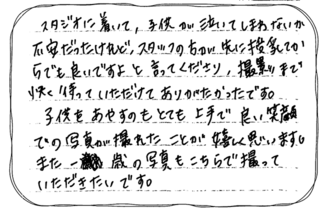 スタジオに着いて、子供が泣いてしまわないか
不安だったけれど、スタッフの方が先に授乳してか
らでも良いですよと言ってくださり、撮影まで
快く待っていただけてありがたかったです。
子供をあやすのもとても上手で良い笑顔
での写真が撮れたことが嬉しく思います。
また一歳の写真もこちらで撮って
いただきたいです。